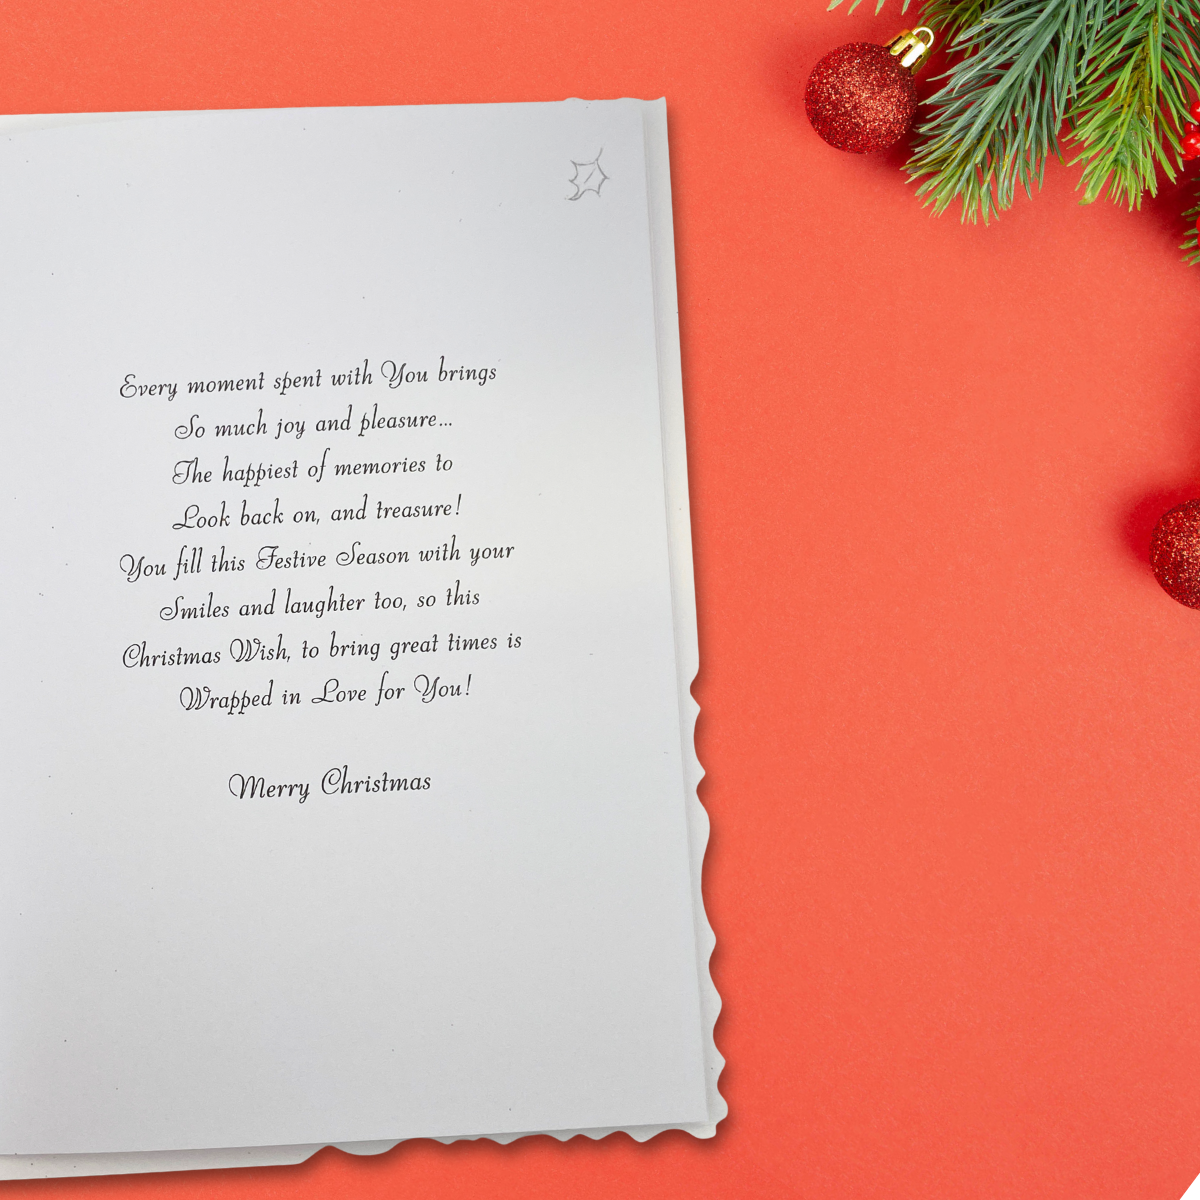 Every moment spent with You brings
So much joy and pleasure...
The happiest of memories to
Look back on, and treasure!
You fill this Festive Season with your
Smiles and laughter too, so this
Christmas Wish, to bring great times is
Wrapped in Love for You!
Merry Christmas